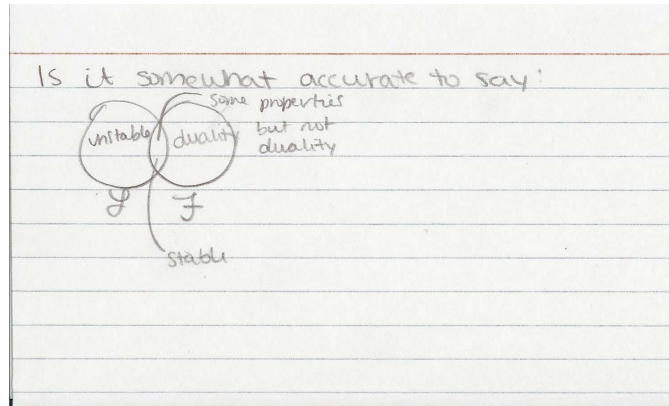 Is it somewhat accurate to say:
some properties
unstable duality but not
duality
ℒ ℱ
stable